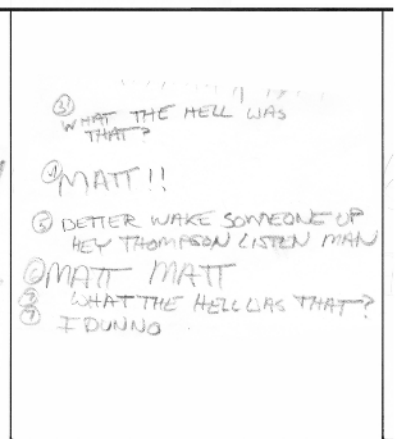 ③
WHAT THE HELL WAS
THAT?
④ MATT!!
⑤ BETTER WAKE SOMEONE UP
HEY THOMPSON LISTEN MAN
⑥ MATT MATT
⑦ WHAT THE HELL WAS THAT?
⑦ I DUNNO